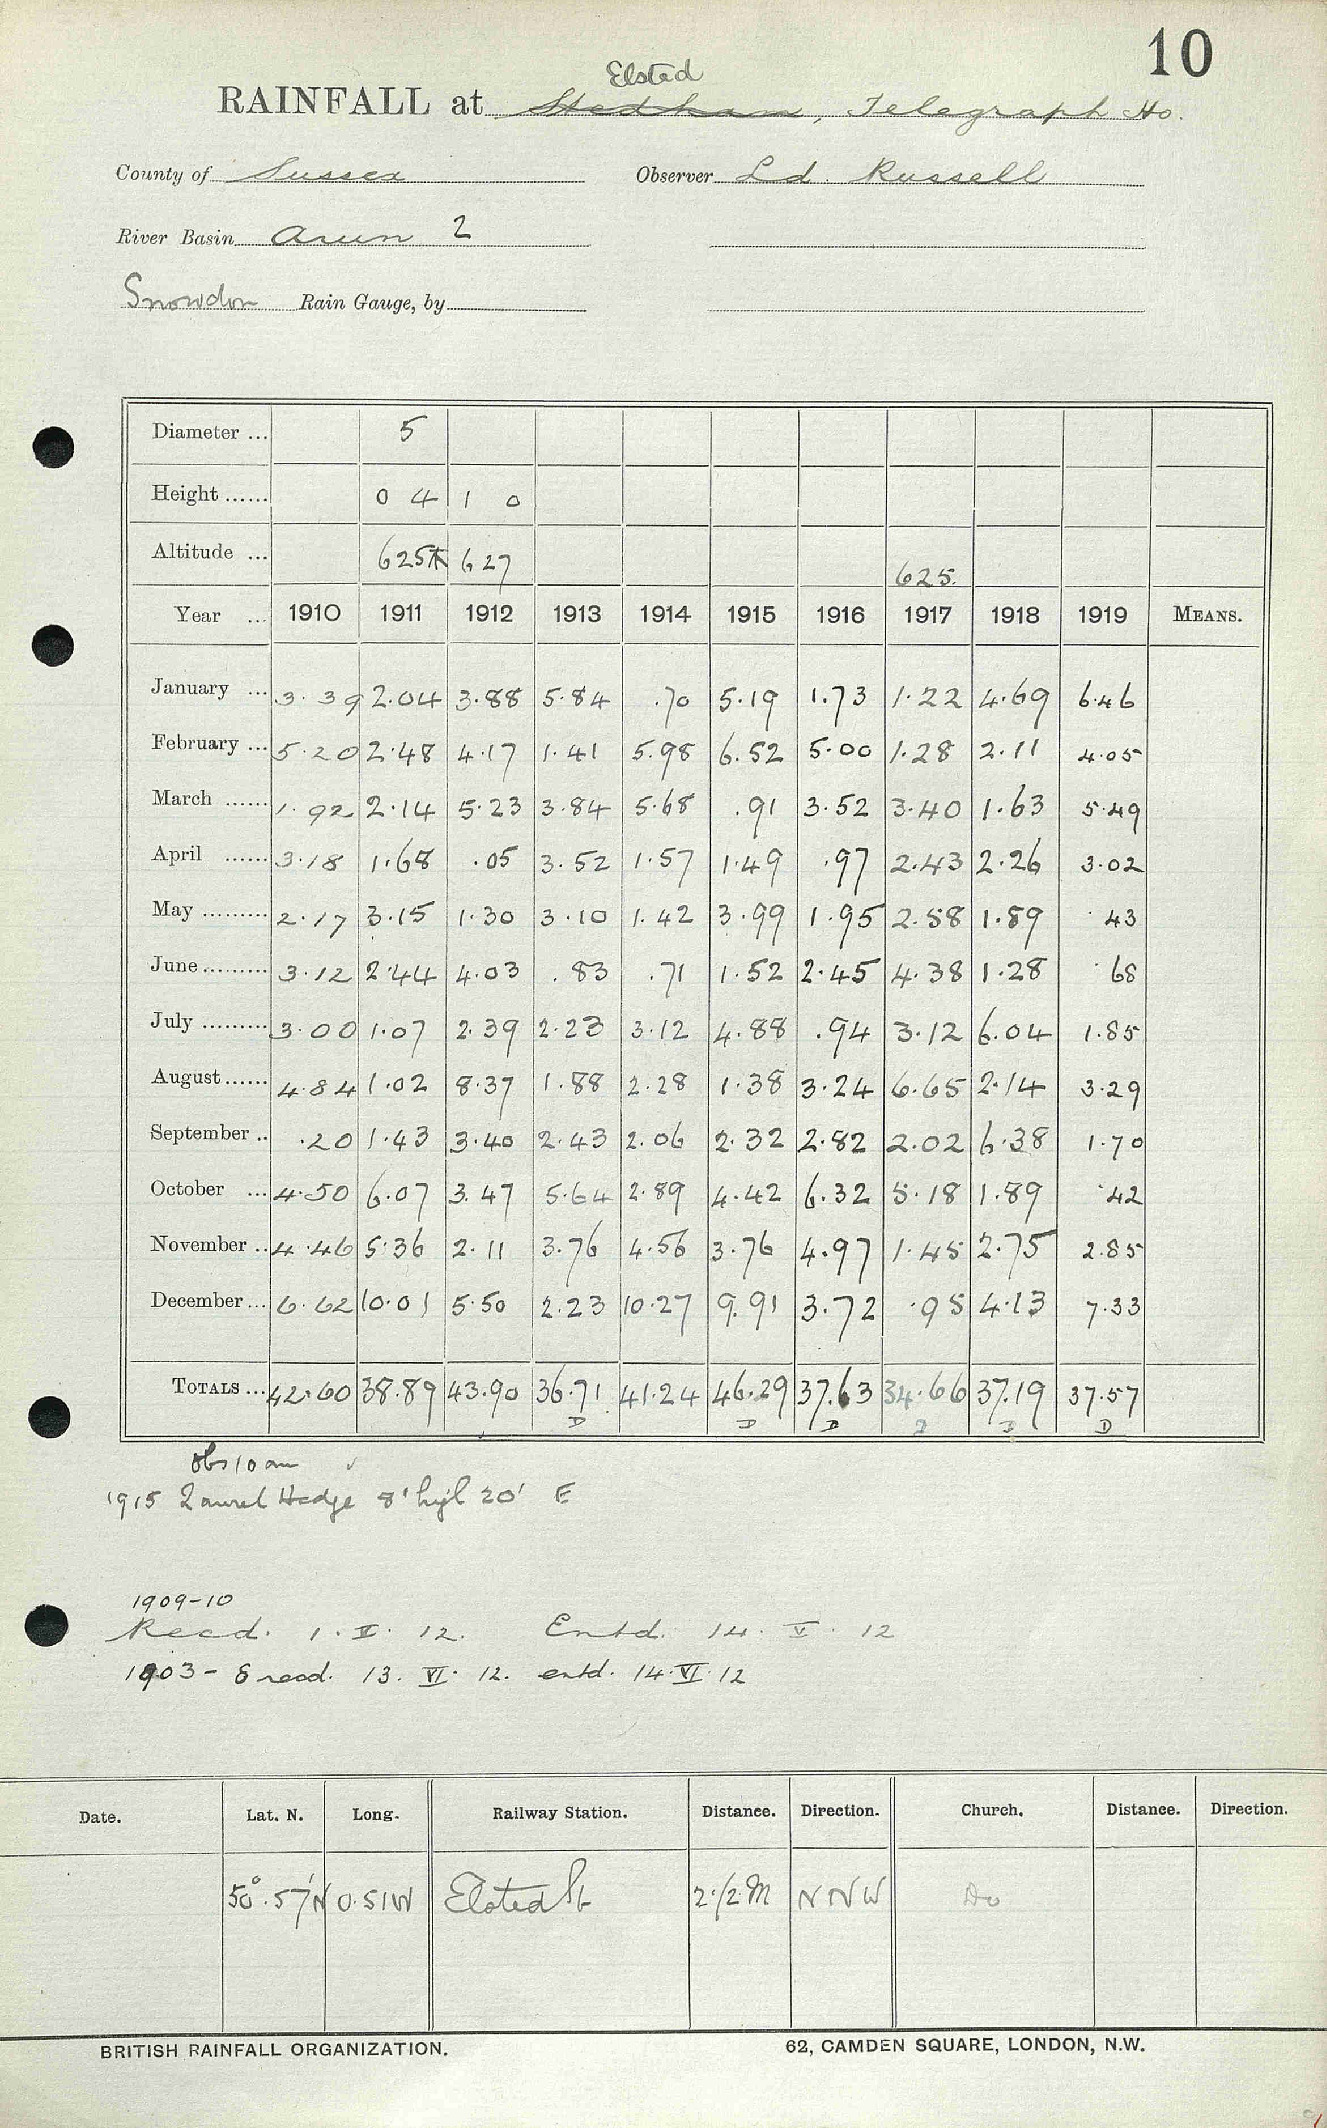 10
Elsted
RAINFALL at Stedham, Telegraph Ho.
County of Sussex Observer Ld. Russell
River Basin Arun 2
Snowdon Rain Gauge, by
Diameter ... 5
Height ...... 0 4 1 0
Altitude ... 625 627 625.
Year ... 1910 1911 1912 1913 1914 1915 1916 1917 1918 1919 MEANS.
January ... 3.39 2.04 3.88 5.84 .70 5.19 1.73 1.22 4.69 6.46
February ... 5.20 2.48 4.17 1.41 5.98 6.52 5.00 1.28 2.11 4.05
March ...... 1.92 2.14 5.23 3.84 5.68 .91 3.52 3.40 1.63 5.49
April ...... 3.18 1.68 .05 3.52 1.57 1.49 .97 2.43 2.26 3.02
May ......... 2.17 3.15 1.30 3.10 1.42 3.99 1.95 2.58 1.89 .43
June ......... 3.12 2.44 4.03 .83 .71 1.52 2.45 4.38 1.28 .68
July ......... 3.00 1.07 2.39 2.23 3.12 4.88 .94 3.12 6.04 1.85
August ...... 4.84 1.02 8.37 1.88 2.28 1.38 3.24 6.65 2.14 3.29
September .. .20 1.43 3.40 2.43 2.06 2.32 2.82 2.02 6.38 1.70
October ... 4.50 6.07 3.47 5.64 2.89 4.42 6.32 5.18 1.89 .42
November .. 4.46 5.36 2.11 3.76 4.56 3.76 4.97 1.45 2.75 2.85
December ... 6.62 10.01 5.50 2.23 10.27 9.91 3.72 .95 4.13 7.33
TOTALS ... 42.60 38.89 43.90 36.71 41.24 46.29 37.63 34.66 37.19 37.57
D D D D D D
Obs 10 am ✓
1915 Laurel Hedge 8' high 20' E
1909-10
Recd. 1. II. 12. Entd. 14. V. 12
1903-8 recd. 13. VI. 12. entd. 14. VI. 12
Date. Lat. N. Long. Railway Station. Distance. Direction. Church. Distance. Direction.
50°.57'N 0.51W Elsted St 2 1/2 M N N W Do
BRITISH RAINFALL ORGANIZATION. 62, CAMDEN SQUARE, LONDON, N.W.